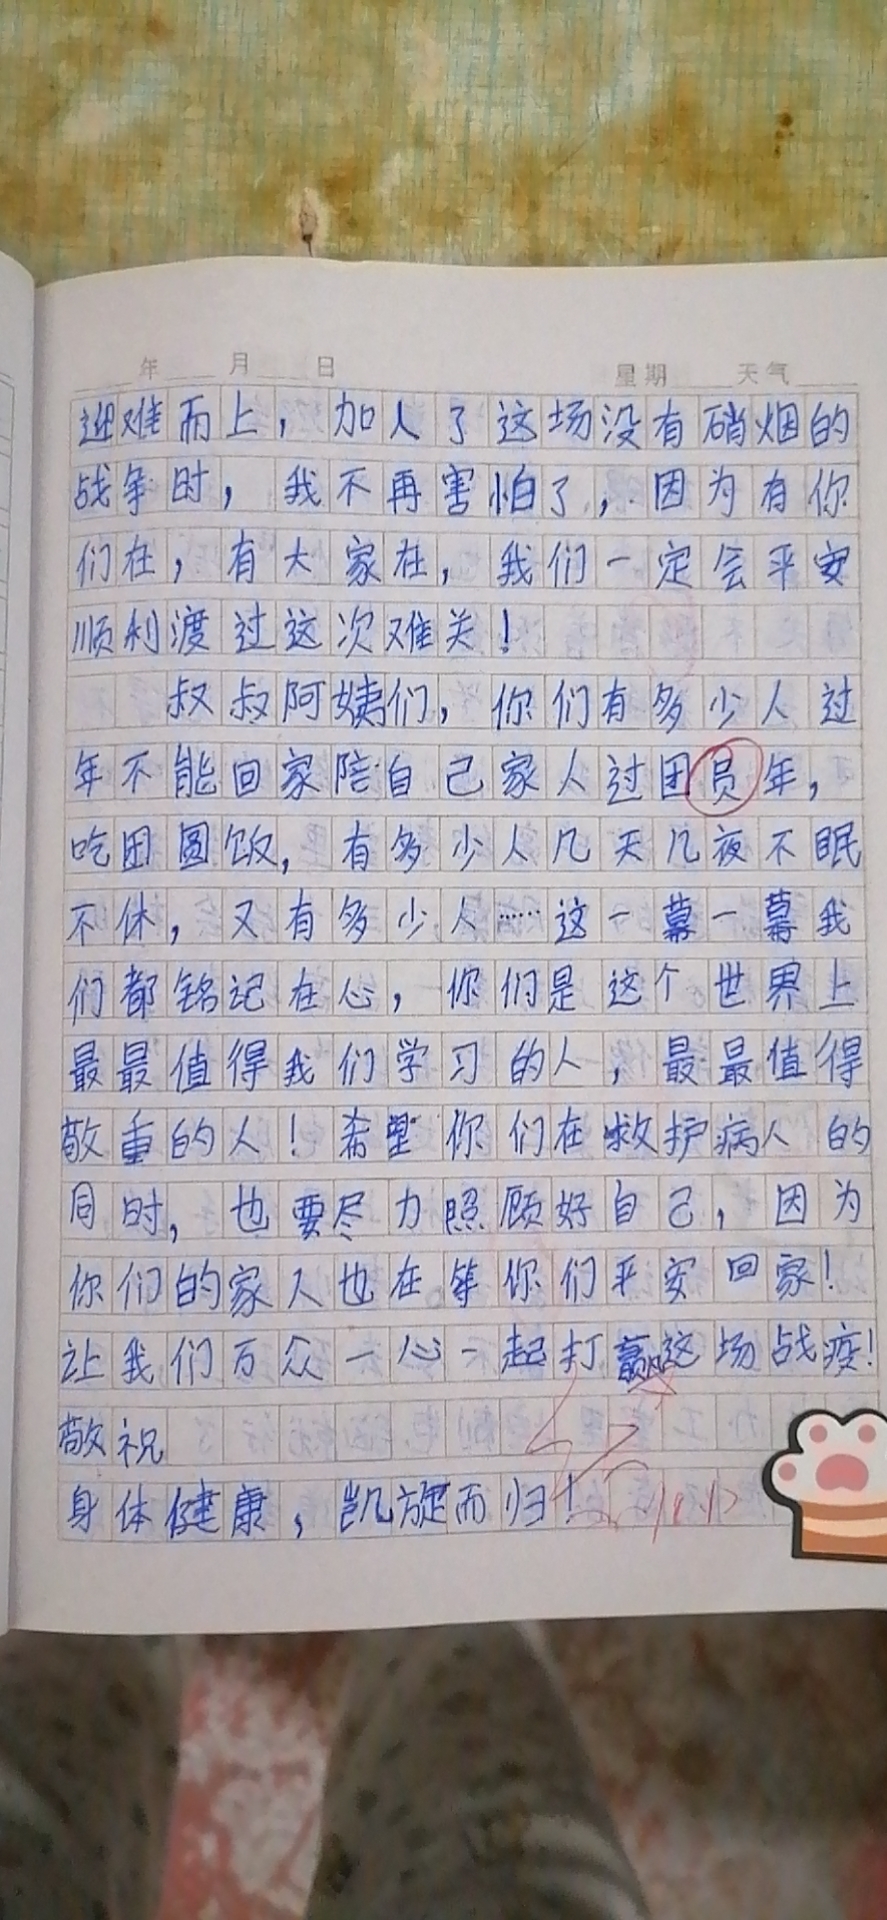 年 月 日 星期 天气
迎难而上，加人了这场没有硝烟的
战争时，我不再害怕了，因为有你
们在，有大家在，我们一定会平安
顺利渡过这次难关！
叔叔阿姨们，你们有多少人过
年不能回家陪自己家人过团员年，
吃团圆饭，有多少人几天几夜不眠
不休，又有多少人……这一幕一幕我
们都铭记在心，你们是这个世界上
最最值得我们学习的人，最最值得
敬重的人！希望你们在救护病人的
同时，也要尽力照顾好自己，因为
你们的家人也在等你们平安回家！
让我们万众一心一起打赢这场战疫！
敬祝
身体健康，凯旋而归！